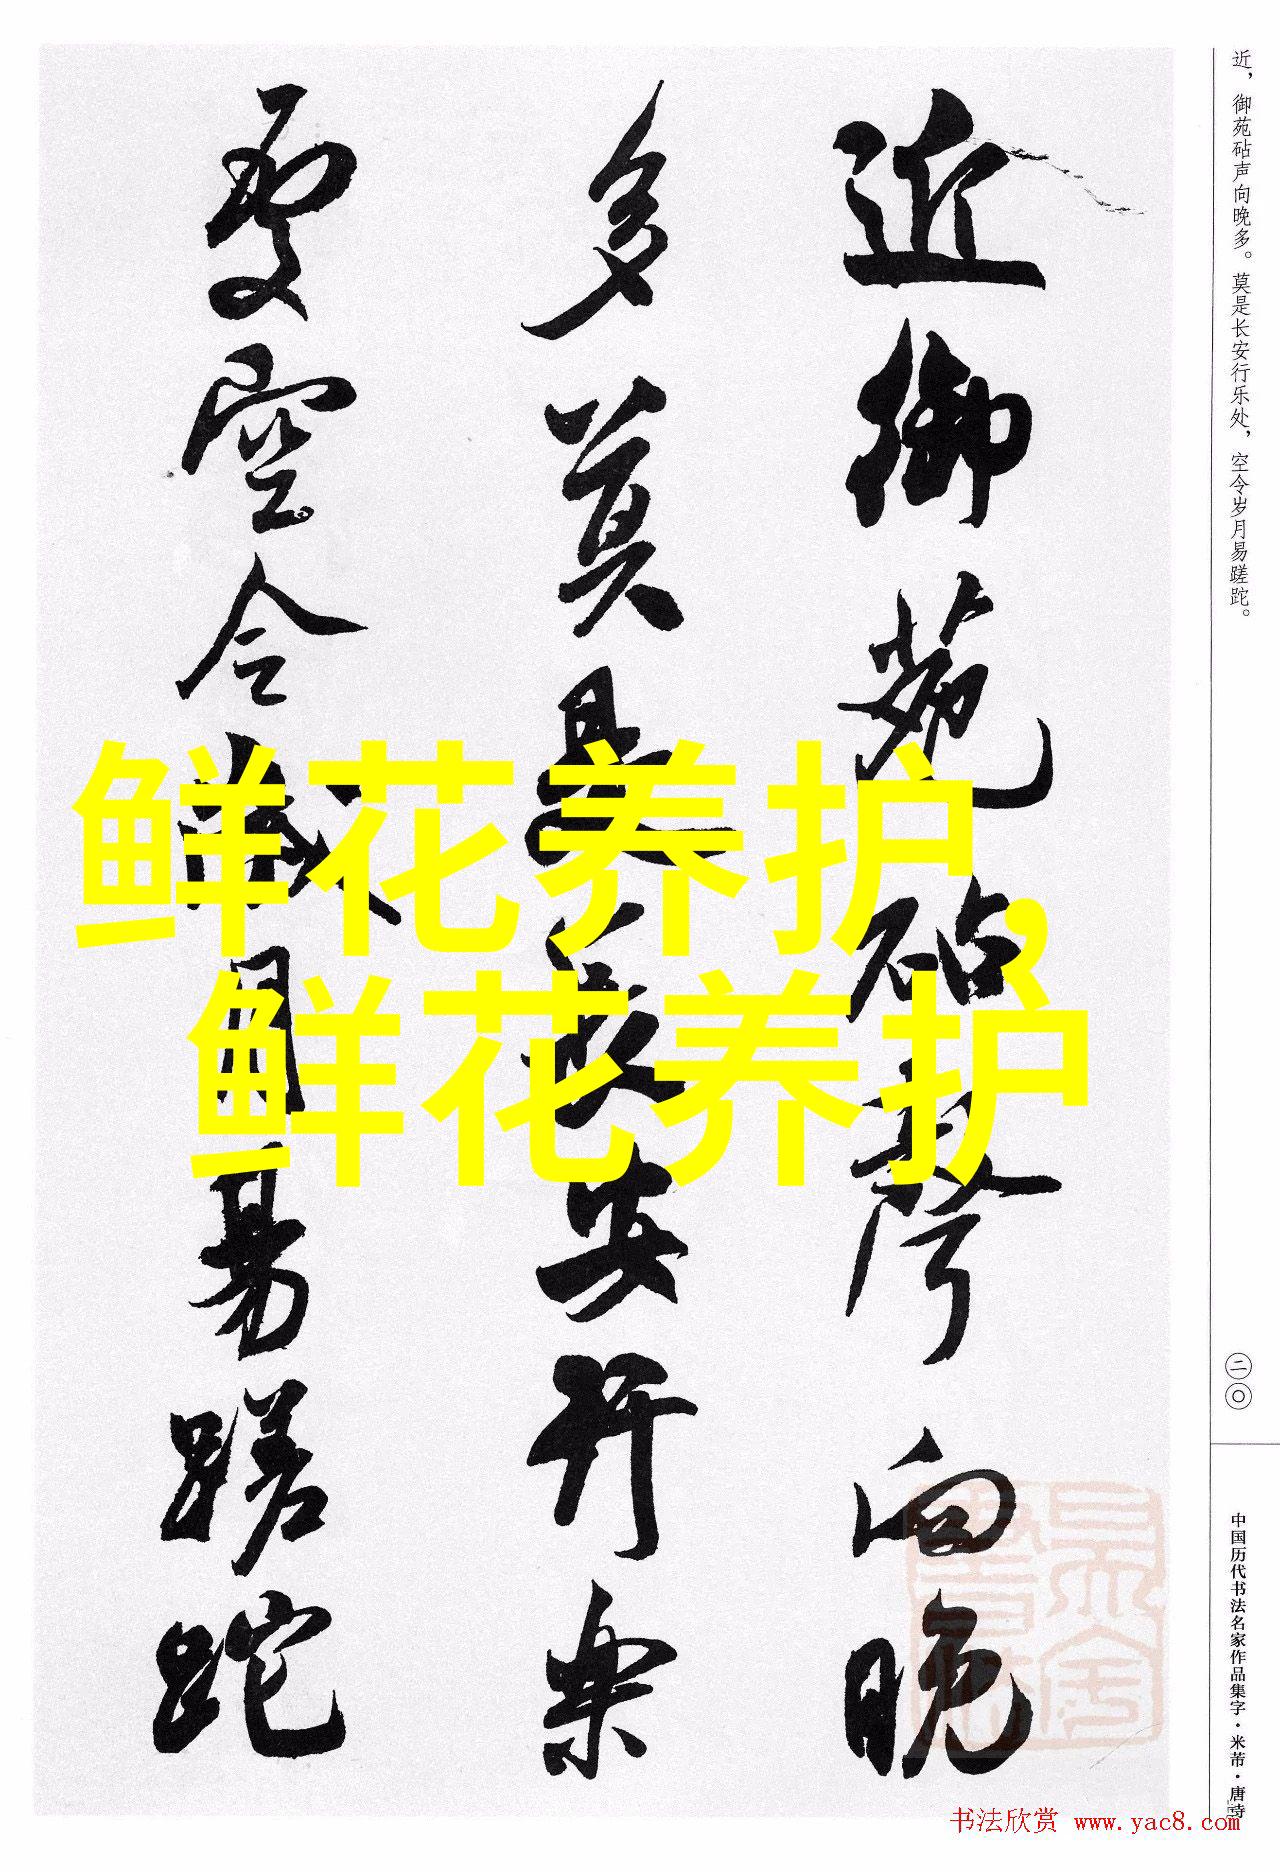 近御苑砧聲向晚
多莫是長安行樂
處空令歲月易蹉跎
鲜花养护，
鲜花养护
近，御苑砧声向晚多。莫是长安行乐处，空令岁月易蹉跎。
二〇
中国历代书法名家作品集字·米芾·唐诗
书法欣赏 www.yac8.com